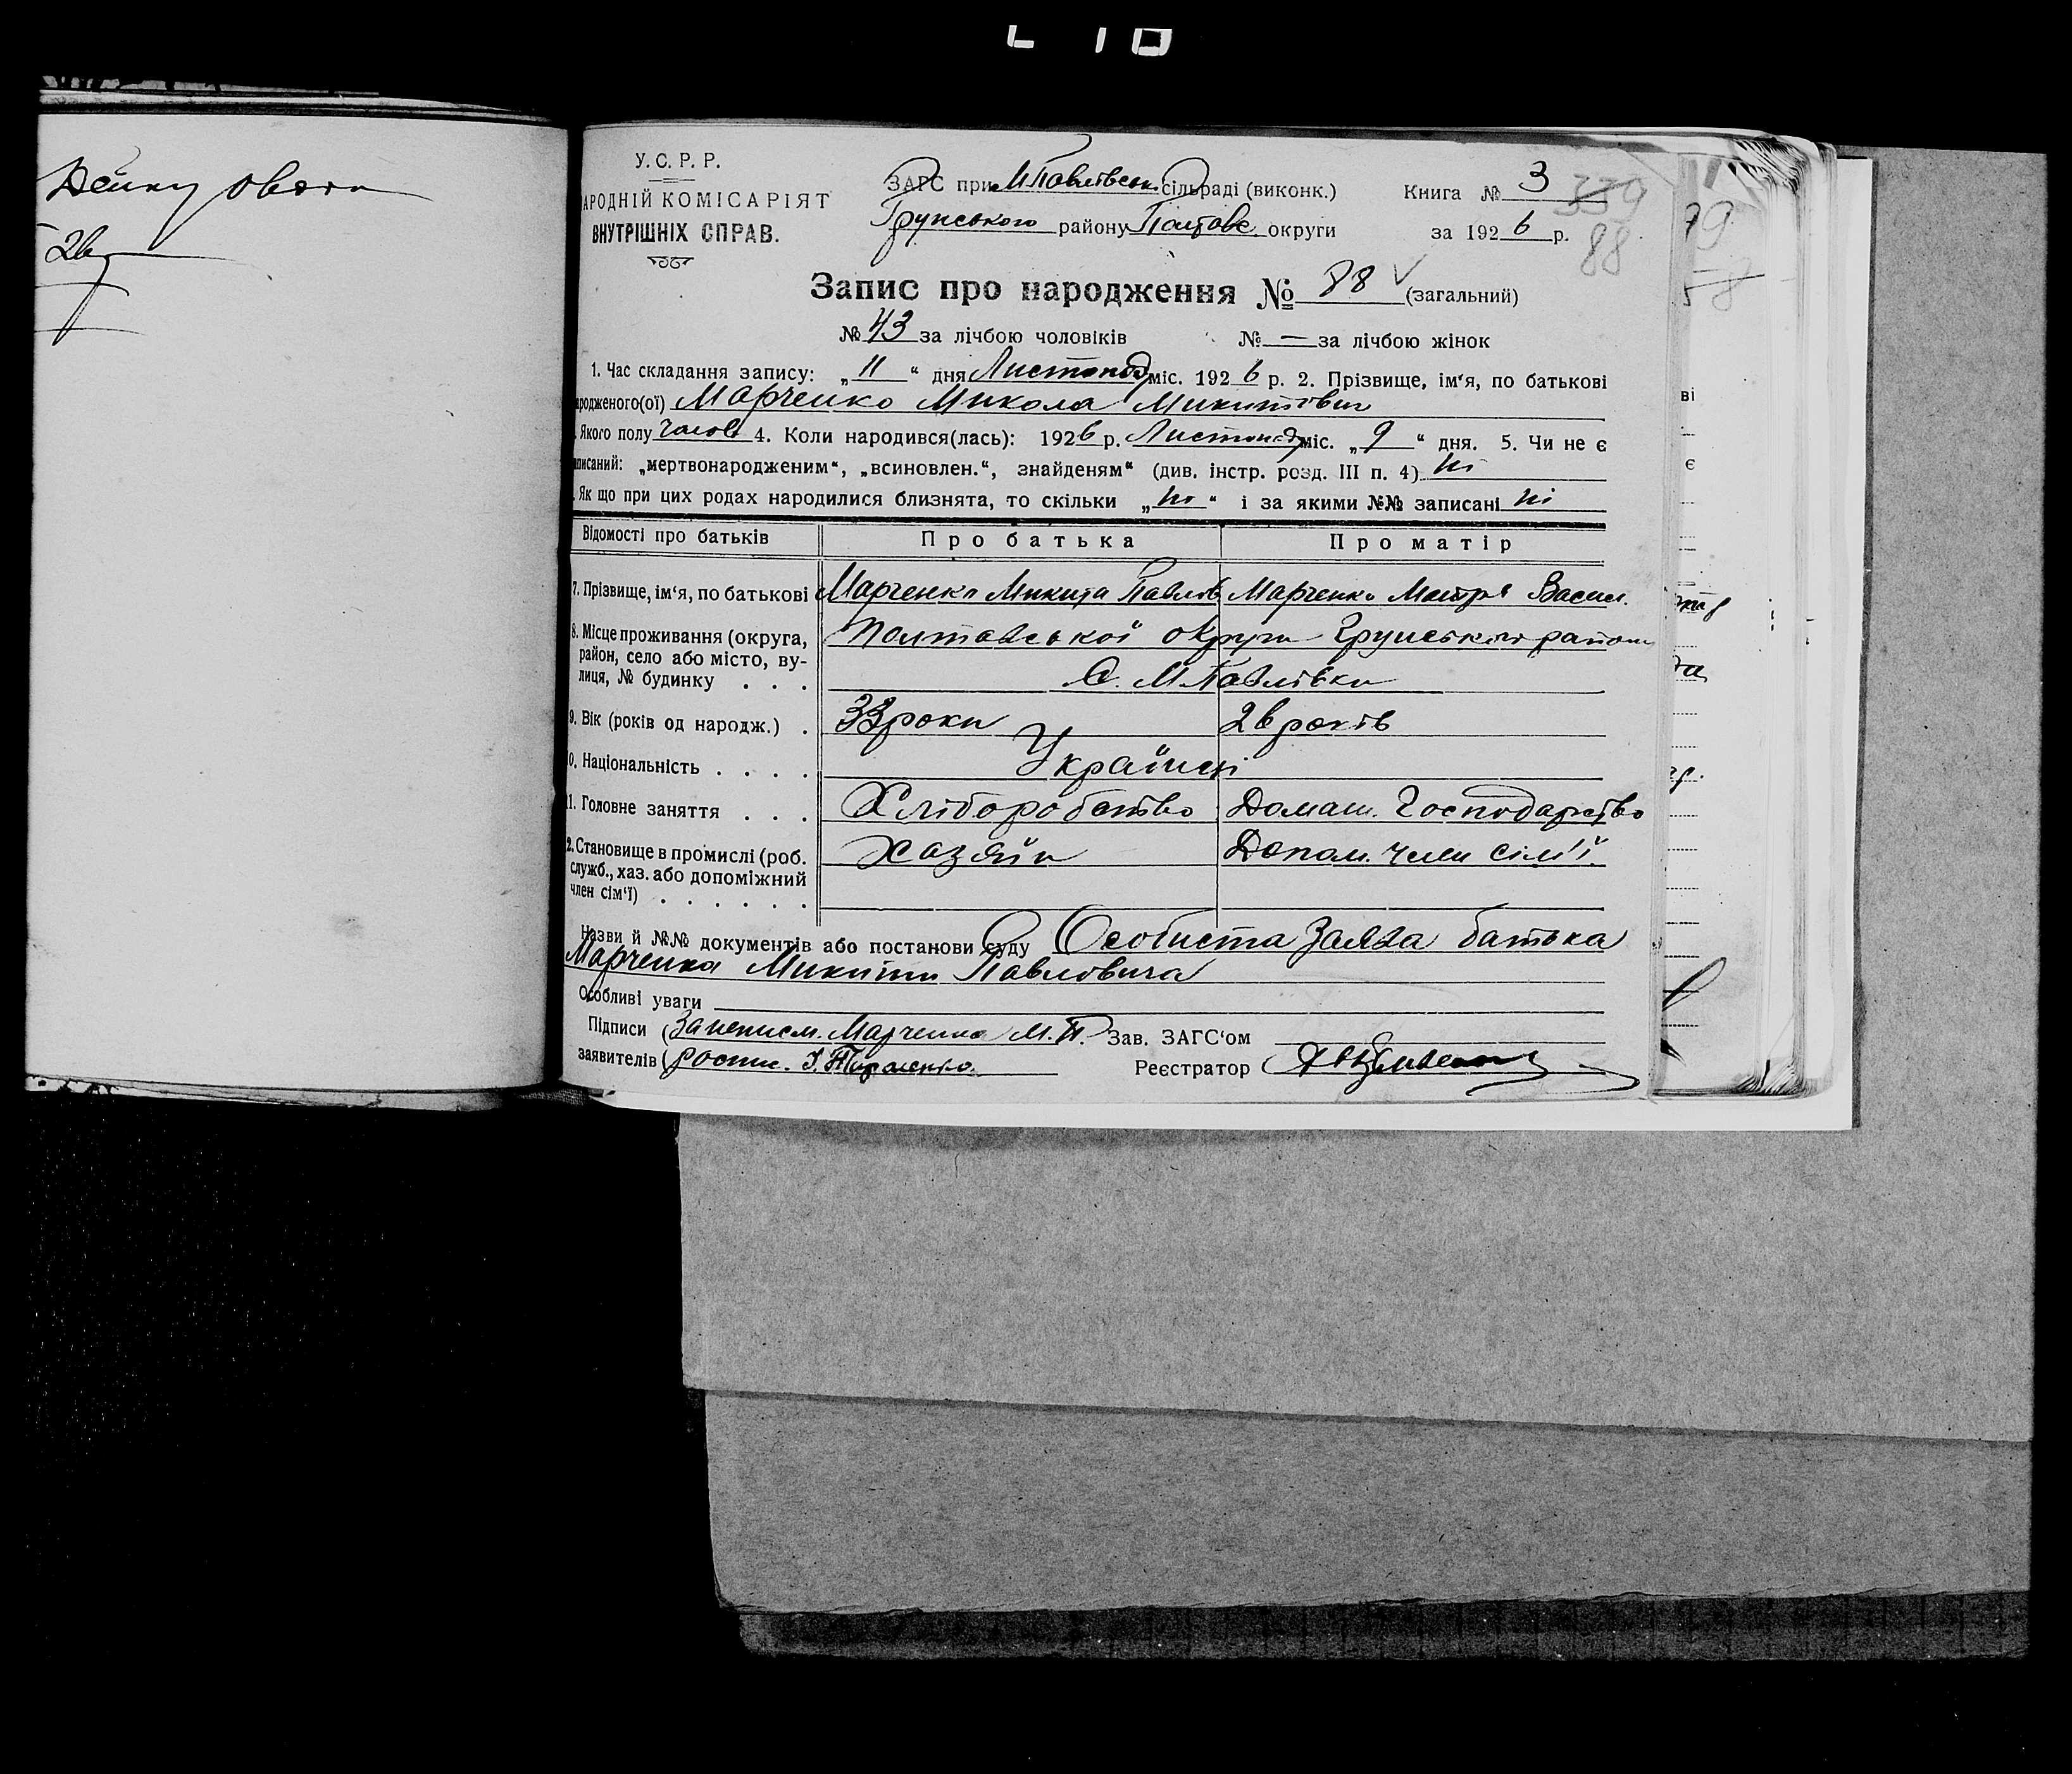 26
У. С. Р. Р.
АРОДНІЙ КОМІСАРІЯТ
ВНУТРІШНІХ СПРАВ.
ЗАГС при М Павлівськ. сільраді (виконк.) Книга № 3 339
Грунського району Полтавс. округи за 1926 р. 88
Запис про народження № 88 (загальний)
№ 43 за лічбою чоловіків № — за лічбою жінок
1. Час складання запису: „11“ дня Листопад міс. 1926 р. 2. Прізвище, ім‘я, по батькові
ародженого(ої) Марченко Микола Микитович
Якого полу чолов 4. Коли народився(лась): 1926 р. Листопад міс. „9“ дня. 5. Чи не є
писаний: „мертвонародженим“, „всиновлен.“, знайденям“ (див. інстр. розд. III п. 4) ні
Як що при цих родах народилися близнята, то скільки „ні“ і за якими №№ записані ні
Відомості про батьків Про батька Про матір
7. Прізвище, ім‘я, по батькові Марченко Микита Павлов Марченко Мотря Васил.
8. Місце проживання (округа, район, село або місто, вулиця, № будинку . . . Полтавської округи Грунського району
С. М Павлівки
9. Вік (років од народж.) . 33 роки 26 років
0. Національність . . . . Українці
11. Головне заняття . . . Хліборобство Домаш. Господарство
2. Становище в промислі (роб. Хазяїн Допом. член сім'ї.
служб., хаз. або допоміжний
член сім‘ї) . . . . . .
Назви й №№ документів або постанови суду Особиста Заява батька
Марченка Микити Павловича
Особливі уваги
Підписи Марченка М. П. Зав. ЗАГС‘ом
заявителів Реєстратор